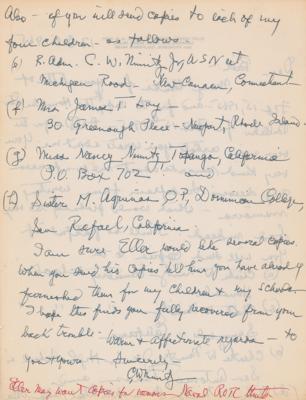 Also - if you will send copies to each of my
four children - as follows
(e) R. Adm. C. W. Nimitz Jr USN ret
Michigan Road - New Canaan, Connecticut
(f) Mrs James T. Lay -
30 Greenough Place - Newport, Rhode Island -
(g) Miss Nancy Nimitz, Topanga, California
P.O. Box 702 and
Sister M. Aquinas O.P., Dominican College,
San Rafael, California
I am sure Eller would like several copies.
When you send his copies tell him you have already
furnished them for my children & my schools.
I hope this finds you fully recovered from your
back trouble - Warm & affectionate regards - to
you & yours - Sincerely
CWNimitz
Eller may want copies for various Naval ROTC Units